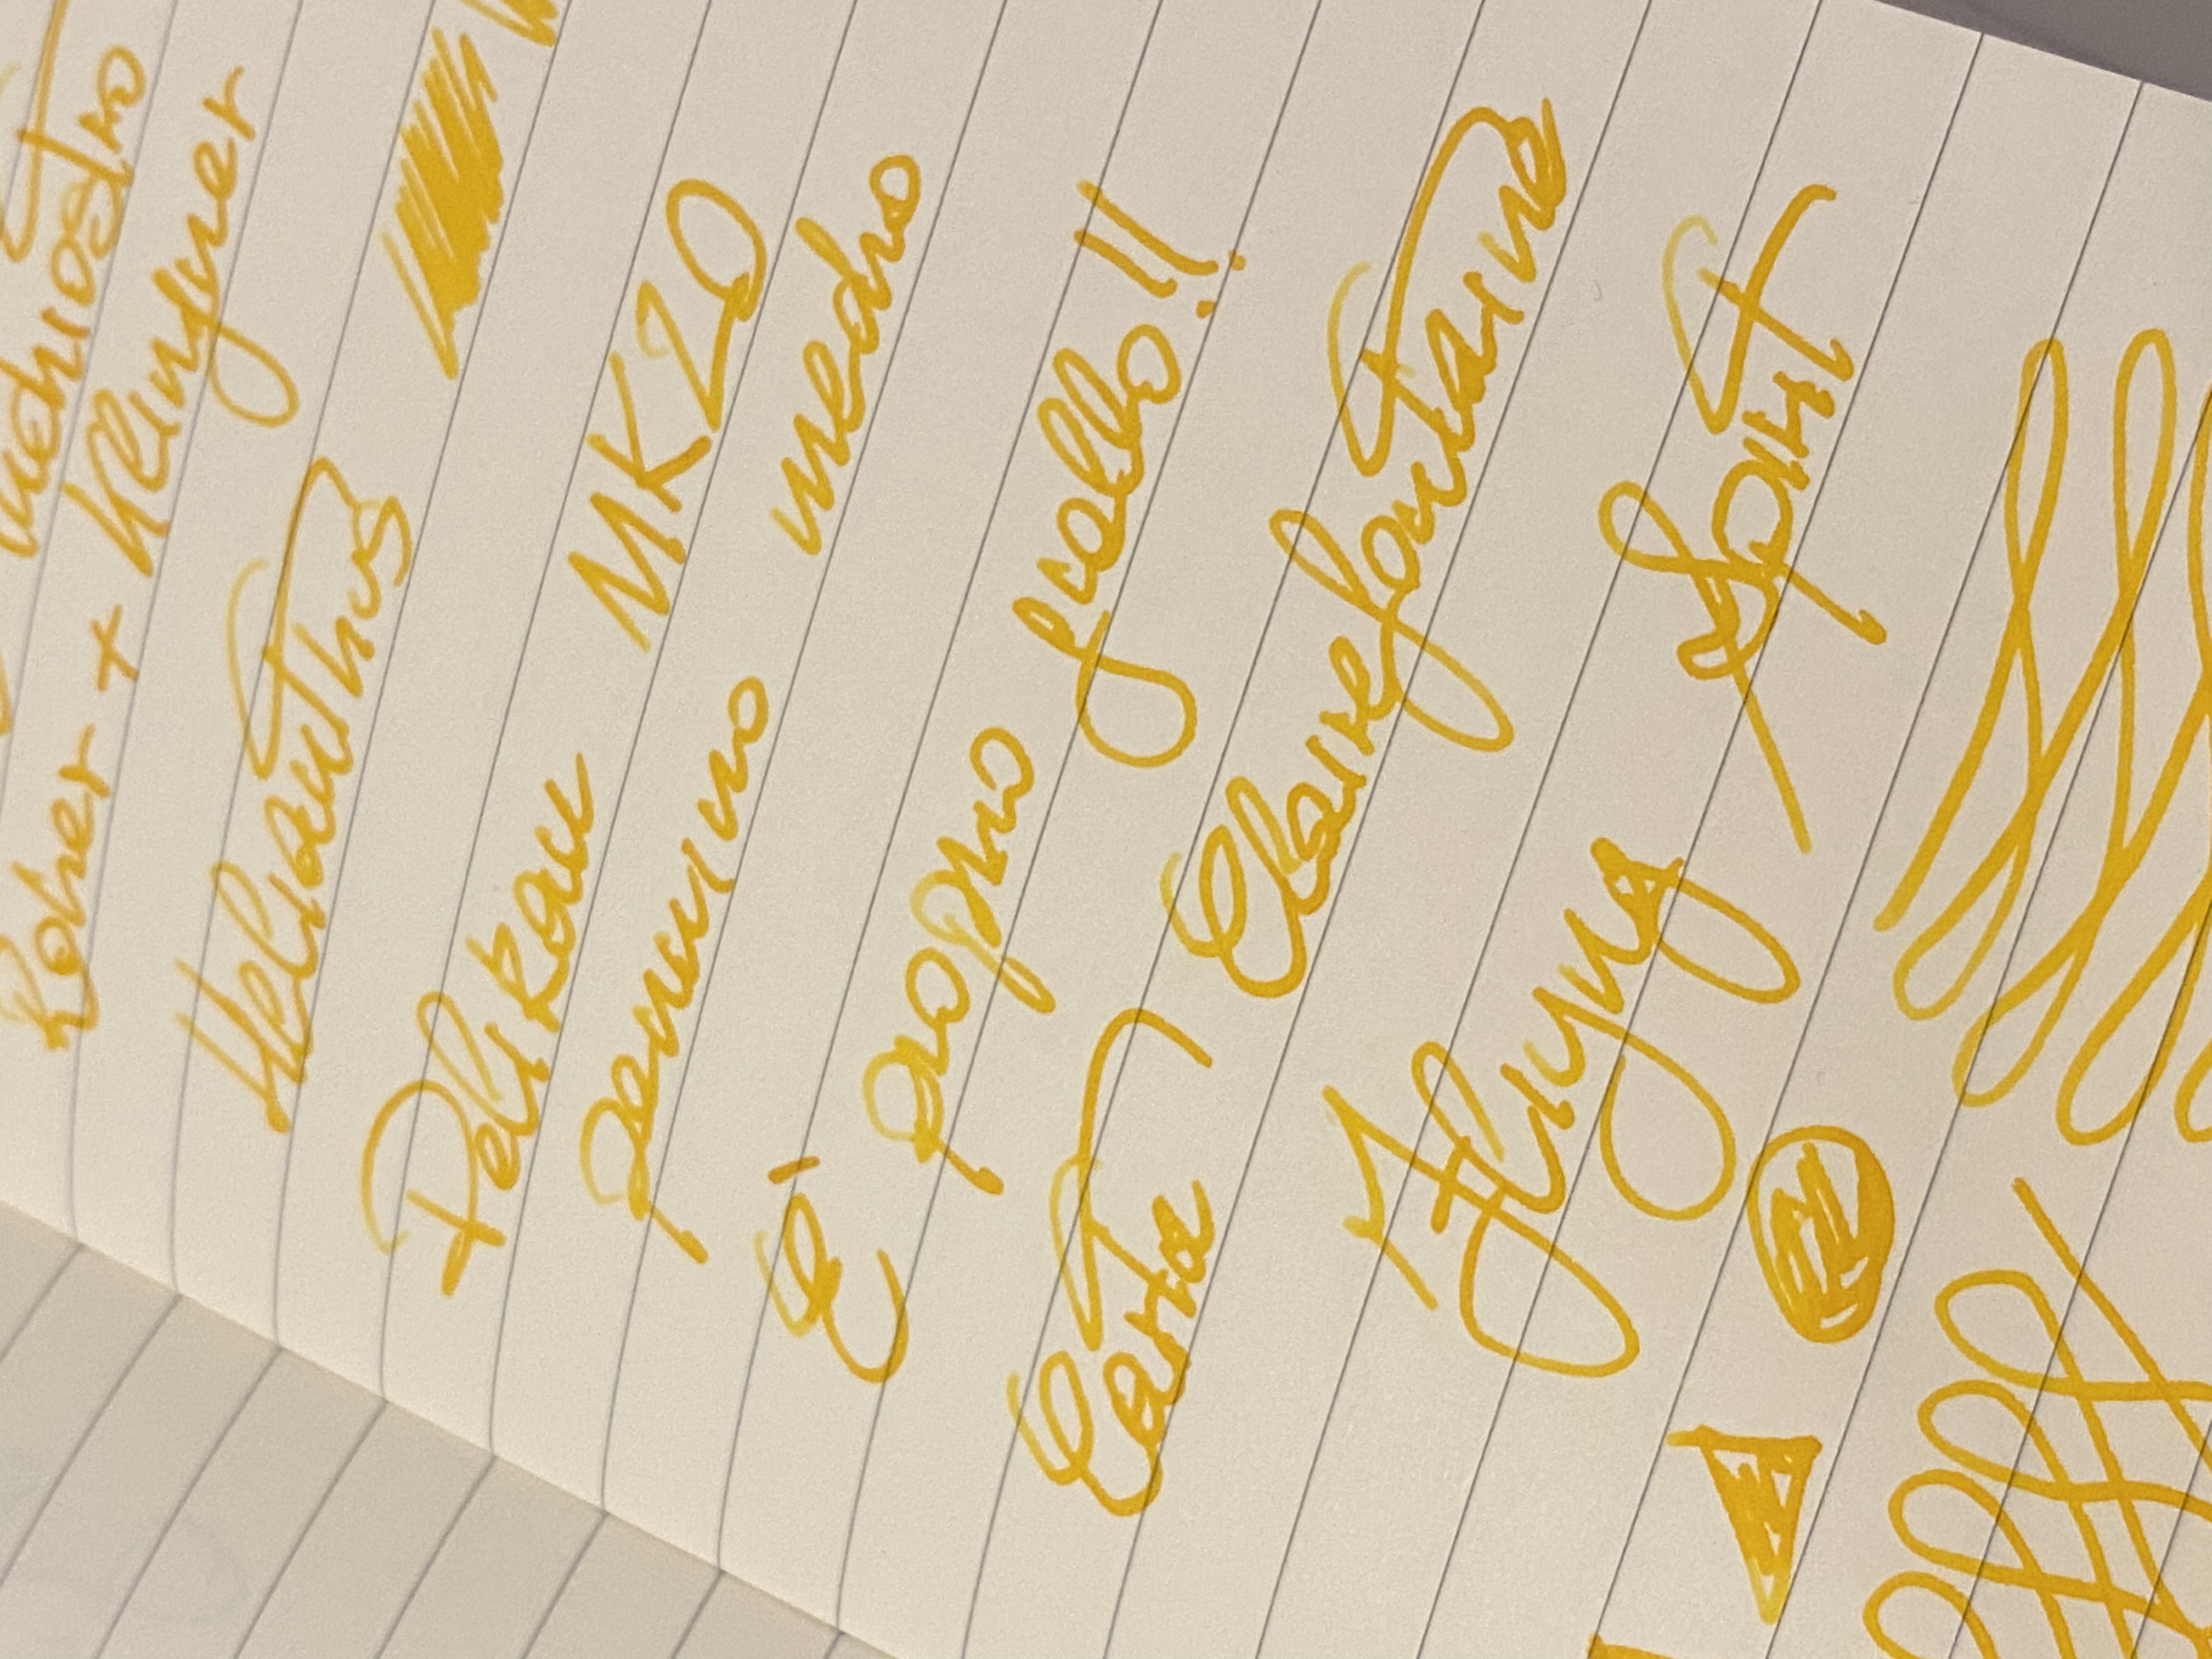 inchiostro
Roher + Klingner
Helianthus
Pelikan MK20
pennino medio
E' proprio giallo!!
Carta Clairefontaine
Flying Spirit